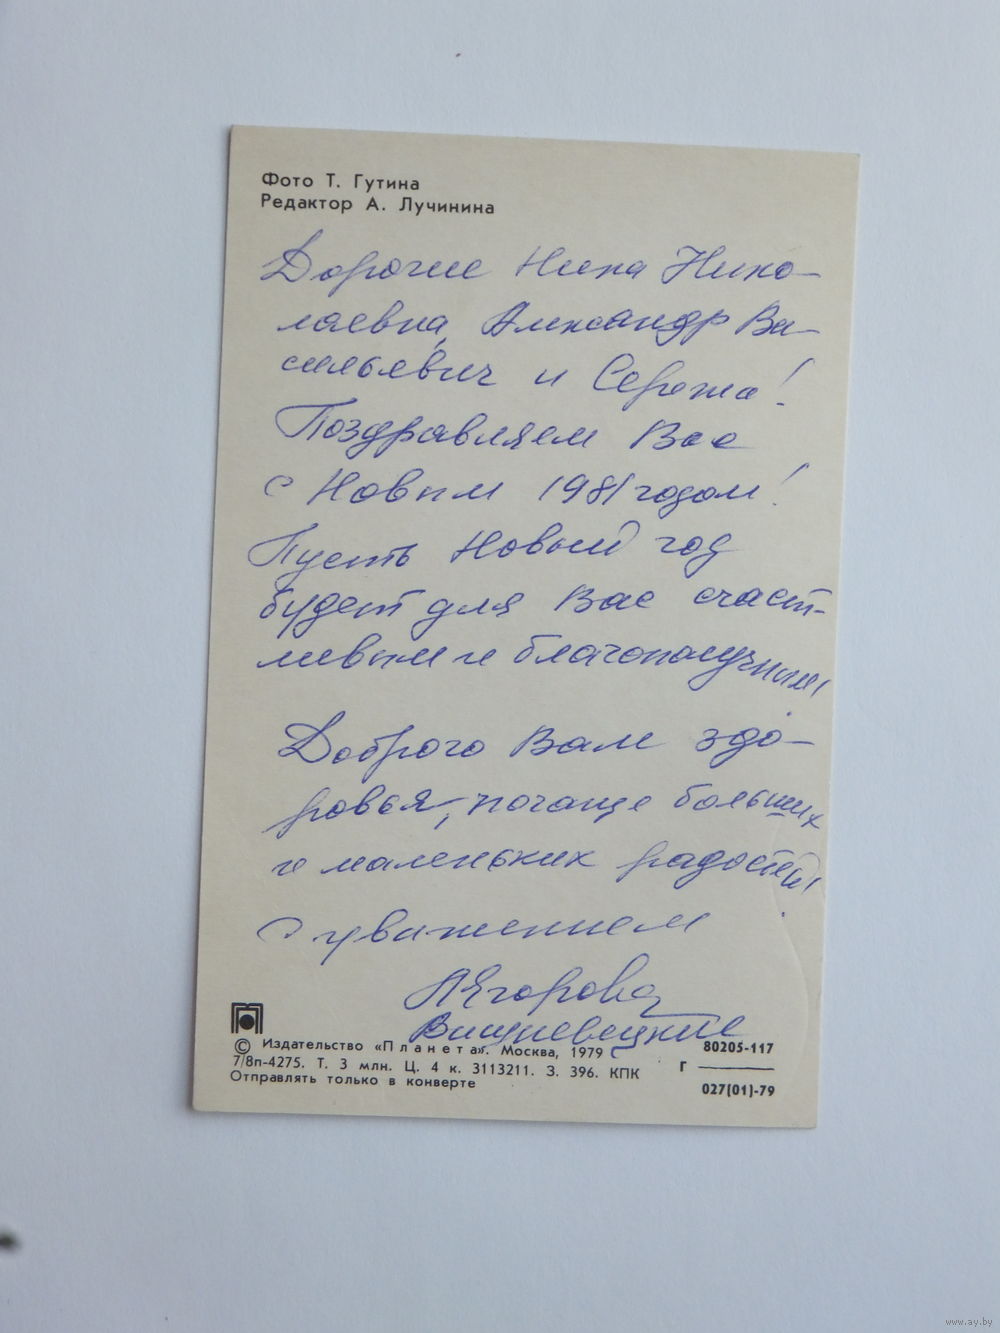 Фото Т. Гутина
Редактор А. Лучинина
Дорогие Нина Нико-
лаевна, Александр Ва-
сильевич и Сережа!
Поздравляем Вас
с Новым 1981 годом!
Пусть Новый год
будет для Вас счаст-
ливым и благополучным!
Доброго Вам здо-
ровья, почаще больших
и маленьких радостей!
С уважением
А Егорова,
Вишневецкие
© Издательство «Планета». Москва, 1979
7/8п-4275. Т. 3 млн. Ц. 4 к. 3113211. З. 396. КПК
Отправлять только в конверте
Г 80205-117
027(01)-79
www.ay.by